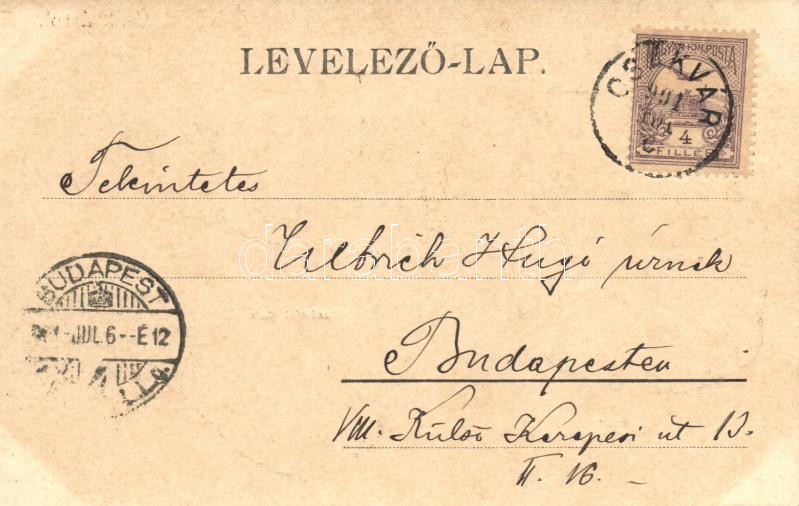 LEVELEZŐ-LAP.
MAGYAR KIR. POSTA
CSÁKVÁR
901
JUL
4
FILLÉR
Tekintetes
Ulbrich Hugó úrnak
Budapesten
VIII. Külső Kerepesi út 13.
II. 16.
BUDAPEST
JUL. 6 - - É 12
darabanth.com